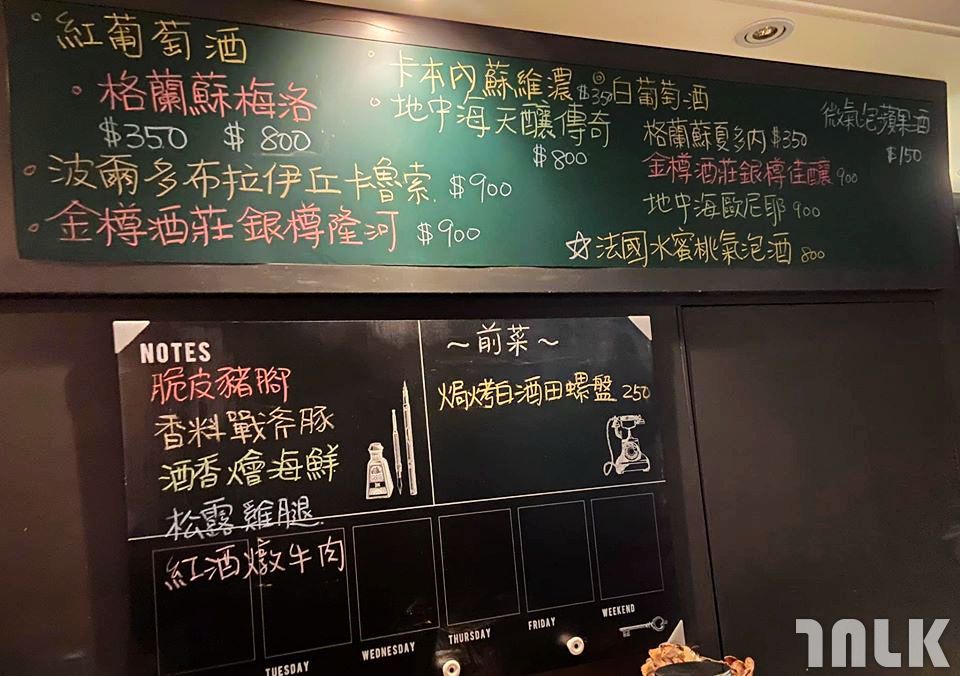 紅葡萄酒
格蘭蘇梅洛
$350 $800
波爾多布拉伊丘卡魯索. $900
金樽酒莊銀樽隆河 $900
卡本內蘇維濃 $350
地中海天釀傳奇
$800
白葡萄酒
格蘭蘇夏多內 $350
金樽酒莊銀樽佳釀 900
地中海歐尼耶 900
☆法國水蜜桃氣泡酒 800
微氣泡蘋果酒
$150
NOTES
脆皮豬腳
香料戰斧豚
酒香燴海鮮
松露雞腿
紅酒燉牛肉
~前菜~
焗烤白酒田螺盤 250
TUESDAY
WEDNESDAY
THURSDAY
FRIDAY
WEEKEND